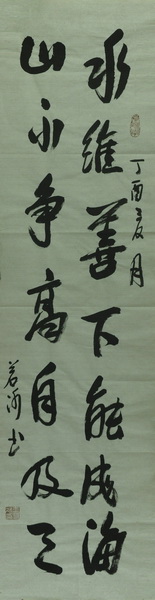 丁酉夏月
水維善下能成海
山不争高自及天
若书